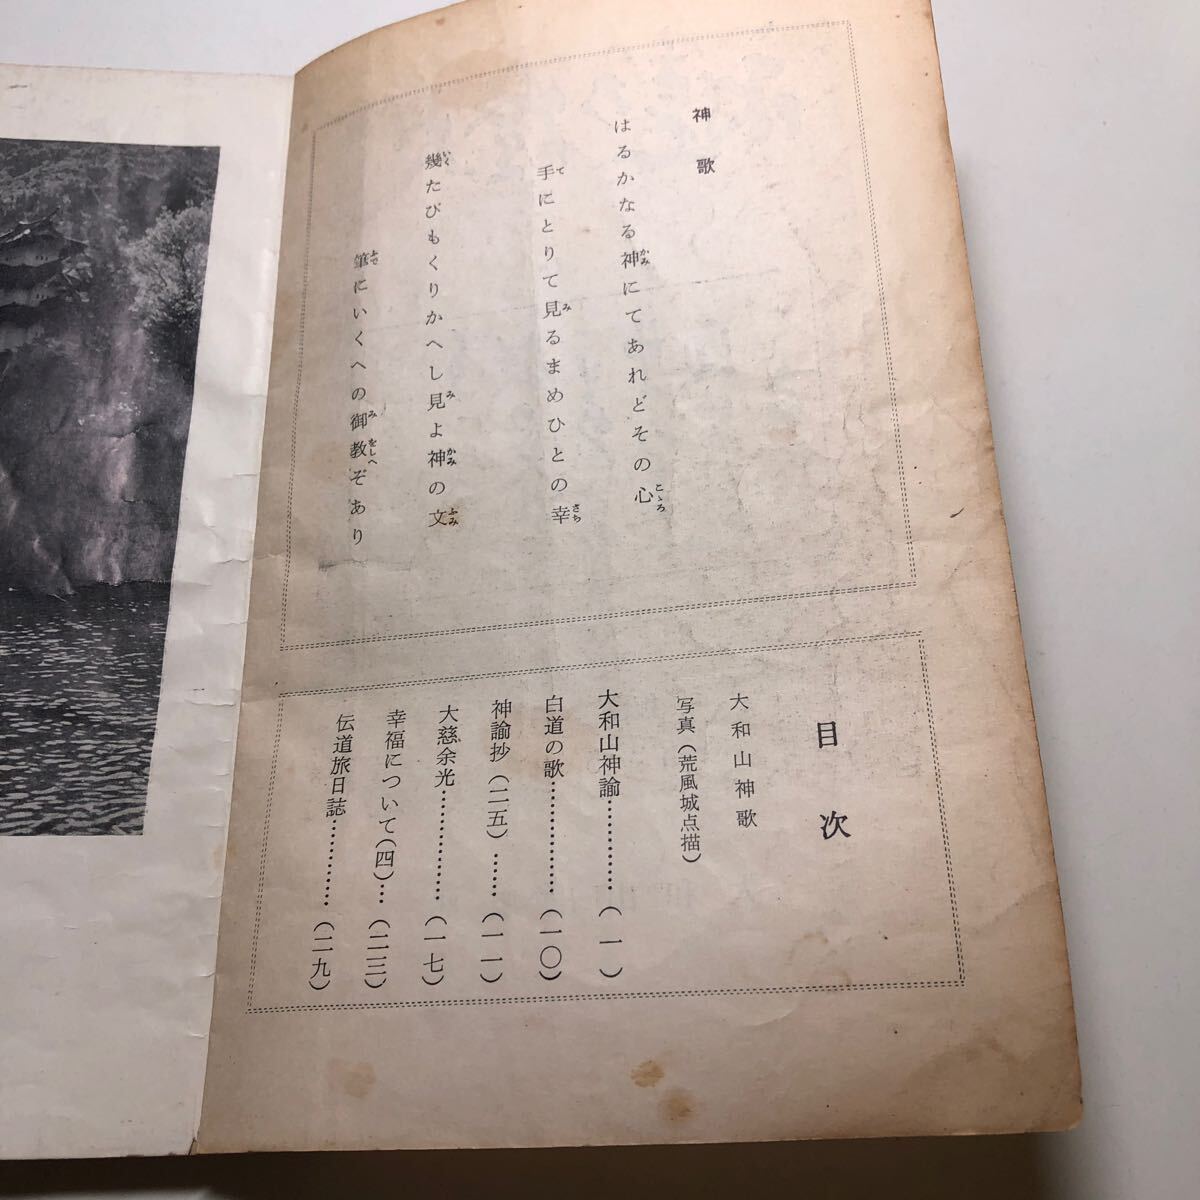 神歌
はるかなる神にてあれどその心
かみ
こゝろ
手にとりて見るまめひとの幸
て
み
さち
幾たびもくりかへし見よ神の文
いく
み
かみ
ふみ
筆にいくへの御教ぞあり
ふで
み
をしへ
目次
大和山神歌
写真（荒風城点描）
大和山神諭…………（一）
白道の歌…………（一〇）
神諭抄（二五）……（一一）
大慈余光…………（一七）
幸福について（四）…（二三）
伝道旅日誌…………（二九）